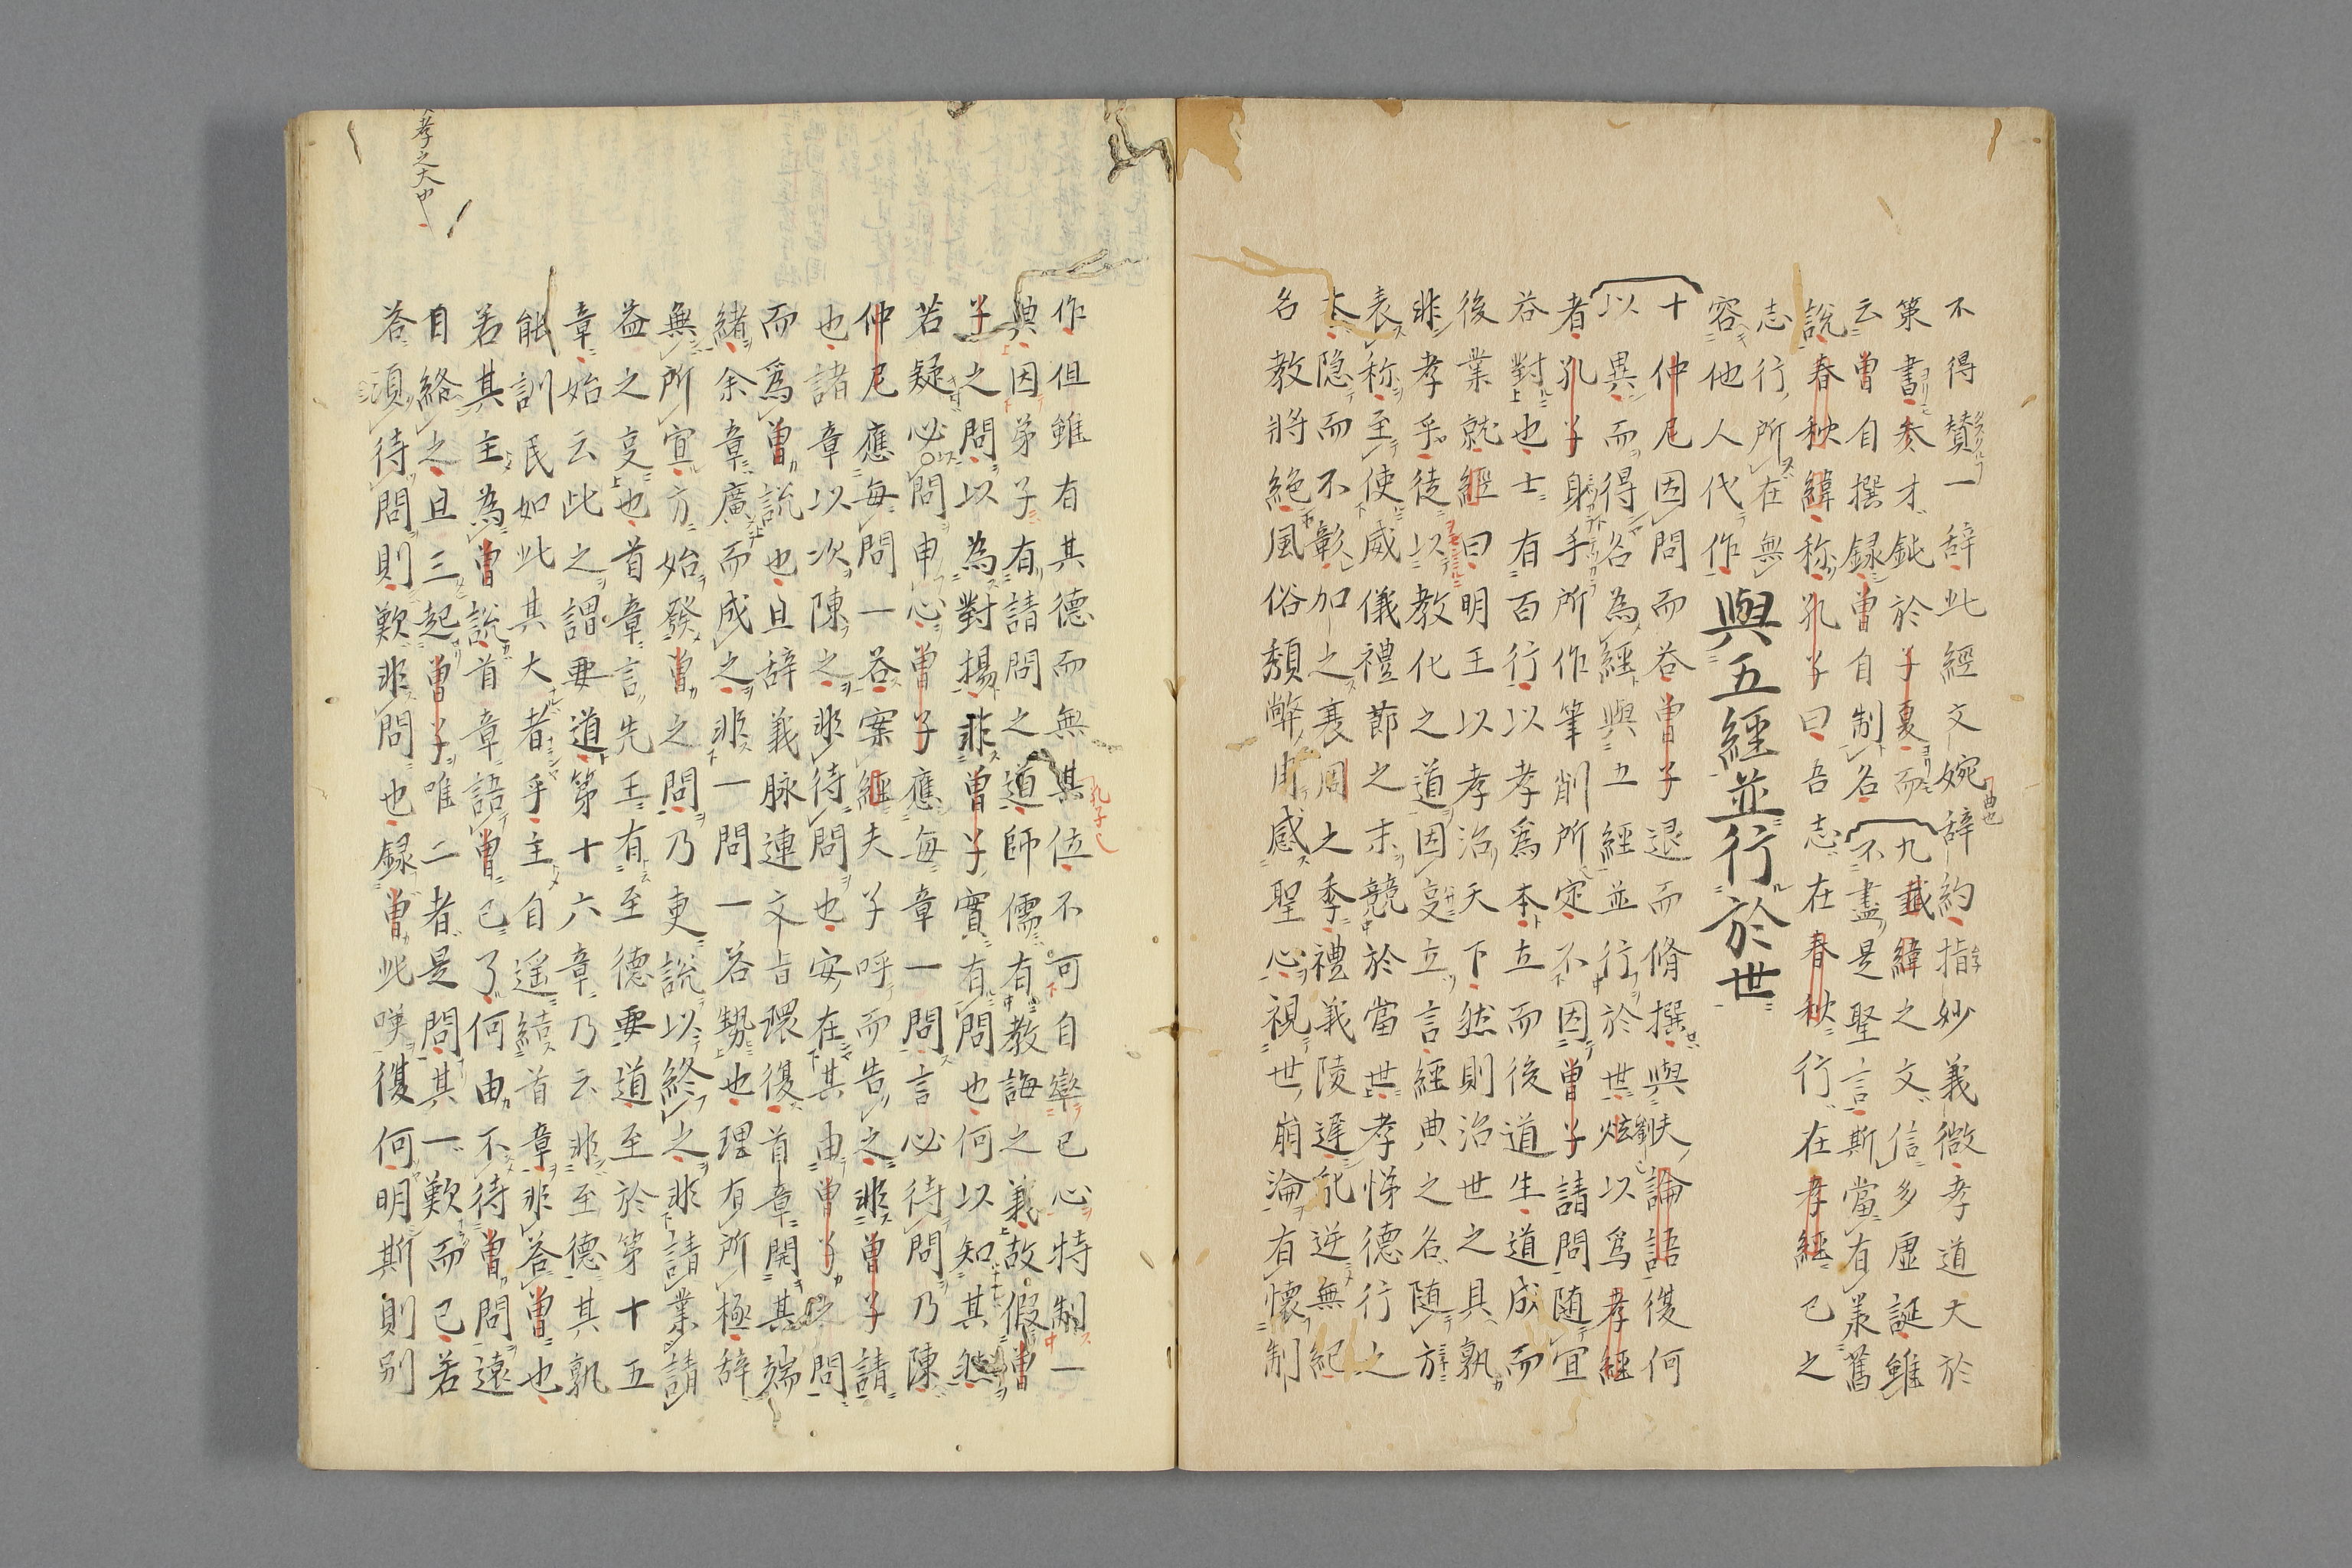 不得賛一辞此經文婉辞約指妙義微孝道大於
第書参才鈍於子夏而九讖緯之文信多虚誕雖
云曽自撰録曽自制名不盡是聖言斯當有義舊
説春秋緯称孔子曰吾志在春秋行在孝經已之
志行所在無
容他人代作與五經並行於世
十仲尼因問而荅曽子退而脩撰與夫論語復何
以異而得名為經與五經並行於世炫以為孝經
者孔子身手所作筆削所定不因曽子請問随宜
荅對也士有百行以孝為本本立而後道生道成而
後業就經曰明王以孝治天下然則治世之具孰
非孝乎徒以教化之道因立言經典之名随方
表称至使威儀禮節之末競於當世孝悌德行之
本隠而不彰加之衰周之季禮義陵遅能逆無紀
名教將絶風俗頽弊感聖心視世崩淪有懐制
作但雖有其德而無其位不可自率己心特制一
典因弟子有請問之道師儒有教誨之義故假曽
子之問以為對揚非曽子實有問也何以知其然
若疑必問申心曽子應毎章一問言必待問乃陳
仲尼應毎問一荅案經夫子呼而告之非曽子請
也諸章以次陳之非待問也安在其由曽子之問
而為曽説也且辞義脉連文旨環復首章開其端
緒余章廣而成之非一問一荅勢也理有所極辞
無所宜方始發曽之問乃更説以終之非請業請
益之也首章言先王有至德要道至於第十五
章始云此之謂要道第十六章乃云非至德其孰
能訓民如此其大者乎主自遥結首章非荅曽也
若其主為曽説首章語曽已了何由不待曽問遠
自絡之且三起曽子唯二者是問其一歎而已若
荅須待問則歎非問也録曽此嘆復何明斯則別
孝之大中
曲也
孔子